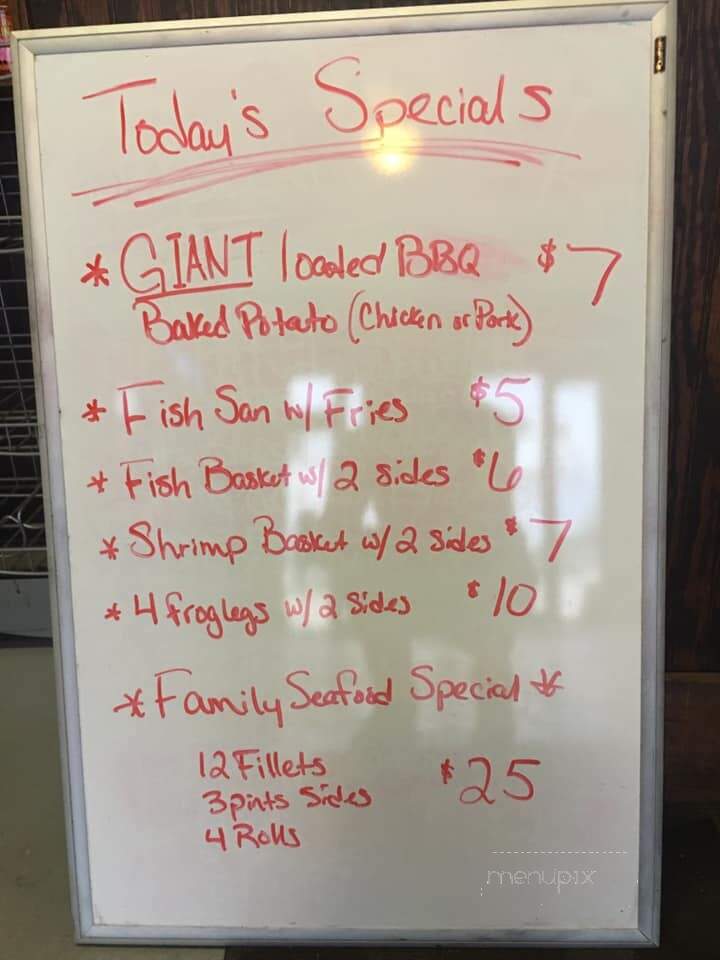 Today's Specials
* GIANT loaded BBQ $7
Baked Potato (Chicken or Pork)
* Fish San w/ Fries $5
* Fish Basket w/ 2 sides $6
* Shrimp Basket w/ 2 sides $7
* 4 froglegs w/ 2 Sides $10
* Family Seafood Special *
12 Fillets
3 pints Sides $25
4 Rolls
menupix